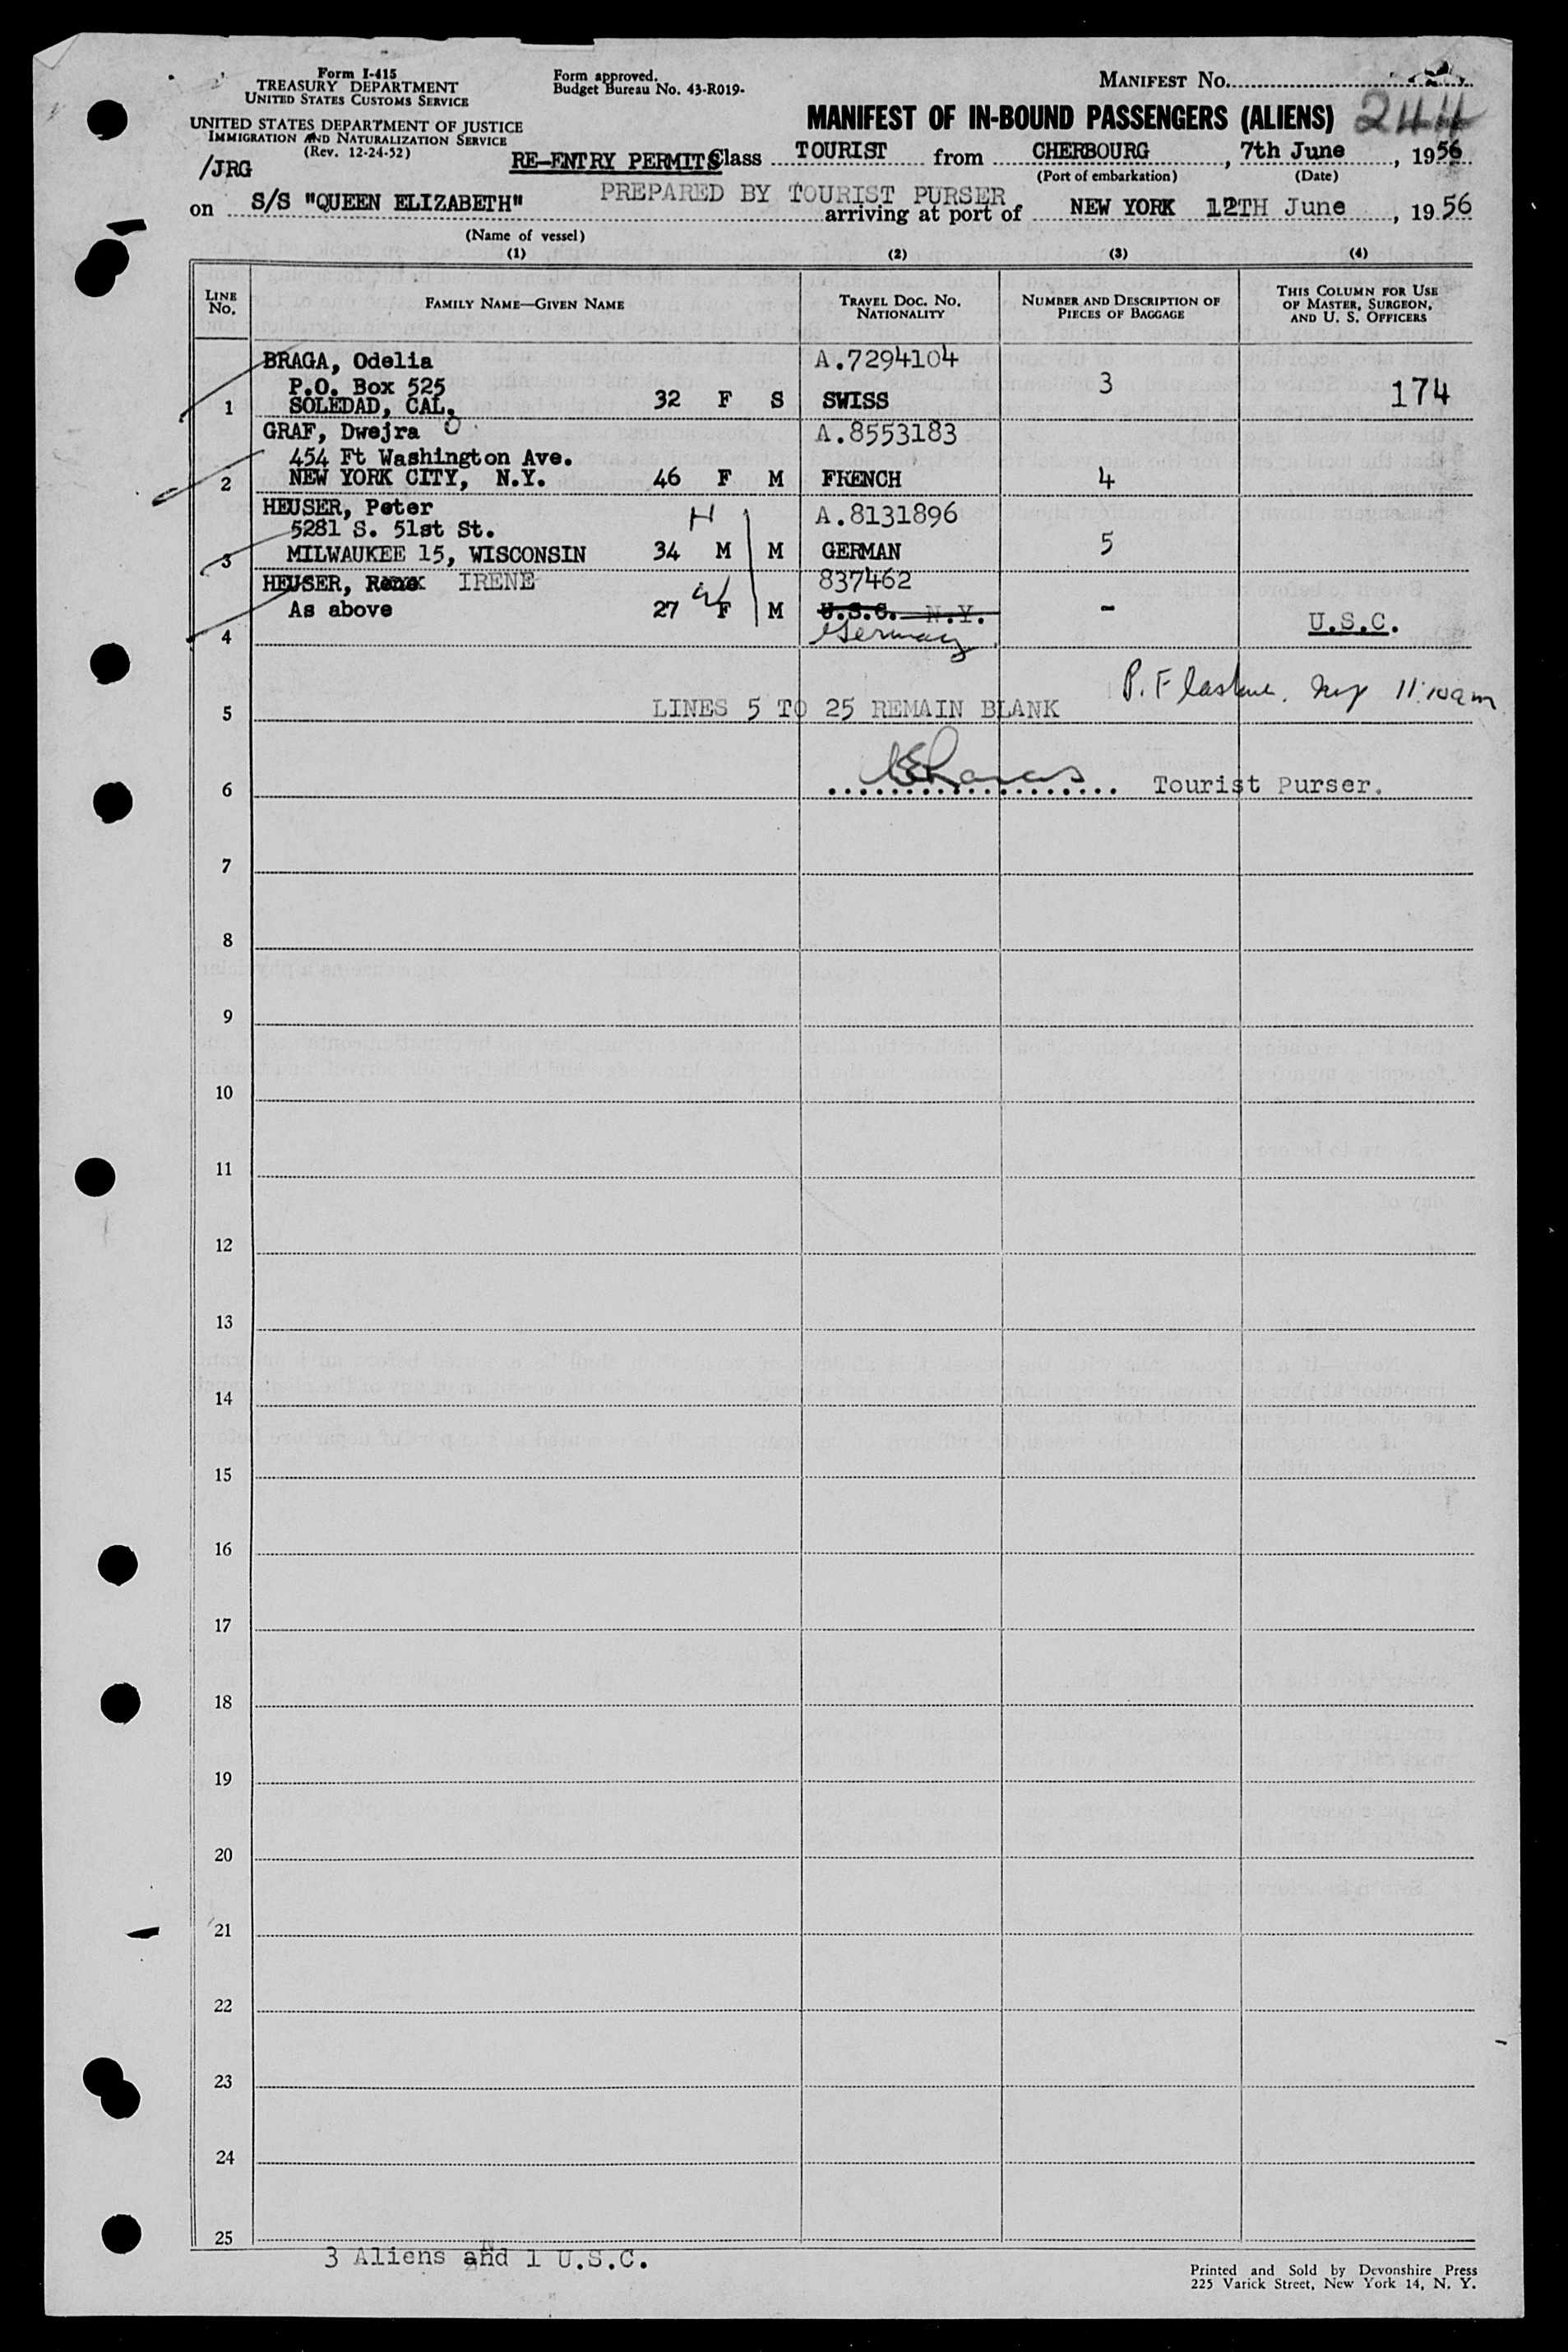 Form I-415
TREASURY DEPARTMENT
UNITED STATES CUSTOMS SERVICE
UNITED STATES DEPARTMENT OF JUSTICE
IMMIGRATION AND NATURALIZATION SERVICE
(Rev. 12-24-52)
/JRG
Form approved.
Budget Bureau No. 43-R019-
MANIFEST NO.
MANIFEST OF IN-BOUND PASSENGERS (ALIENS) 244
RE-ENTRY PERMITS Class TOURIST from CHERBOURG, 7th June, 1956
(Port of embarkation) (Date)
PREPARED BY TOURIST PURSER
on S/S "QUEEN ELIZABETH" arriving at port of NEW YORK 12TH June, 1956
(Name of vessel)
(1) (2) (3) (4)
LINE NO. FAMILY NAME—GIVEN NAME TRAVEL DOC. NO. NATIONALITY NUMBER AND DESCRIPTION OF PIECES OF BAGGAGE THIS COLUMN FOR USE OF MASTER, SURGEON, AND U. S. OFFICERS
BRAGA, Odelia A.7294104
P.O. Box 525 3
1 SOLEDAD, CAL. 32 F S SWISS 174
GRAF, Dwejra O A.8553183
454 Ft Washington Ave.
2 NEW YORK CITY, N.Y. 46 F M FRENCH 4
HEUSER, Peter H A.8131896
5281 S. 51st St.
3 MILWAUKEE 15, WISCONSIN 34 M M GERMAN 5
HEUSER, IRENE 837462
As above 27 W F M U.S.C. N.Y. -
4 Germany U.S.C.
P. F 11:10am
5 LINES 5 TO 25 REMAIN BLANK
6 Tourist Purser.
7
8
9
10
11
12
13
14
15
16
17
18
19
20
21
22
23
24
25
3 Aliens and 1 U.S.C.
Printed and Sold by Devonshire Press
225 Varick Street, New York 14, N. Y.